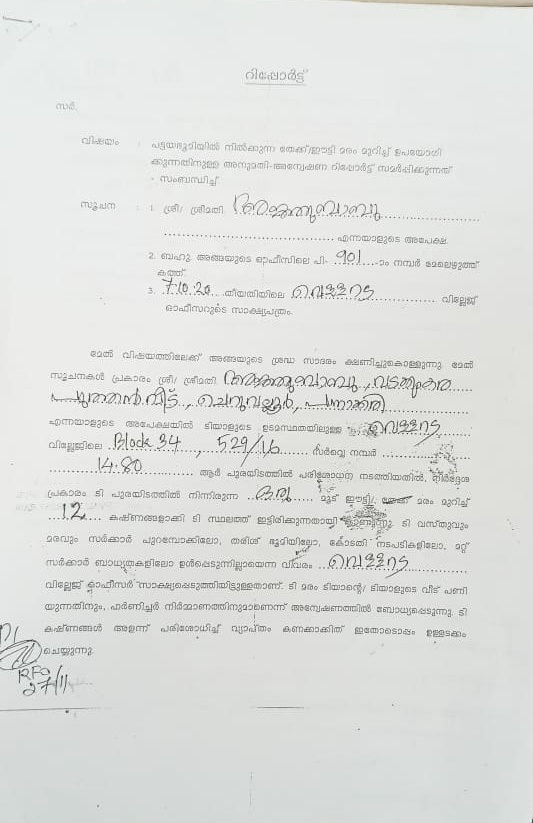 റിപ്പോർട്ട്
സർ,
വിഷയം : പട്ടയഭൂമിയിൽ നിൽക്കുന്ന തേക്ക്/ഈട്ടി മരം മുറിച്ച് ഉപയോഗി
ക്കുന്നതിനുള്ള അനുമതി-അന്വേഷണ റിപ്പോർട്ട് സമർപ്പിക്കുന്നത്
- സംബന്ധിച്ച്
സൂചന : 1. ശ്രീ/ ശ്രീമതി
എന്നയാളുടെ അപേക്ഷ.
2. ബഹു. അങ്ങയുടെ ഓഫീസിലെ പി- 901 -ാം നമ്പർ മേലെഴുത്ത്
കത്ത്.
3. 7.10.20 തീയതിയിലെ വില്ലേജ്
ഓഫീസറുടെ സാക്ഷ്യപത്രം.
മേൽ വിഷയത്തിലേക്ക് അങ്ങയുടെ ശ്രദ്ധ സാദരം ക്ഷണിച്ചുകൊള്ളുന്നു. മേൽ
സൂചനകൾ പ്രകാരം ശ്രീ/ ശ്രീമതി
എന്നയാളുടെ അപേക്ഷയിൽ ടിയാളുടെ ഉടമസ്ഥതയിലുള്ള
വില്ലേജിലെ Block 34, 529/16 സർവ്വെ നമ്പർ
14.80 ആർ പുരയിടത്തിൽ പരിശോധന നടത്തിയതിൽ, നിർദ്ദേശ
പ്രകാരം ടി പുരയിടത്തിൽ നിന്നിരുന്ന ഒരു മൂട് ഈട്ടി/ തേക്ക് മരം മുറിച്ച്
12 കഷ്ണങ്ങളാക്കി ടി സ്ഥലത്ത് ഇട്ടിരിക്കുന്നതായി കാണുന്നു. ടി വസ്തുവും
മരവും സർക്കാർ പുറമ്പോക്കിലോ, തരിശ് ഭൂമിയിലോ, കോടതി നടപടികളിലോ, മറ്റ്
സർക്കാർ ബാധ്യതകളിലോ ഉൾപ്പെടുന്നില്ലായെന്ന വിവരം
വില്ലേജ് ഓഫീസർ സാക്ഷ്യപ്പെടുത്തിയിട്ടുള്ളതാണ്. ടി മരം ടിയാന്റെ/ ടിയാളുടെ വീട് പണി
യുന്നതിനും, ഫർണിച്ചർ നിർമ്മാണത്തിനുമാണെന്ന് അന്വേഷണത്തിൽ ബോധ്യപ്പെടുന്നു. ടി
കഷ്ണങ്ങൾ അളന്ന് പരിശോധിച്ച് വ്യാപ്തം കണക്കാക്കിത് ഇതോടൊപ്പം ഉള്ളടക്കം
ചെയ്യുന്നു.
RFO
27/11